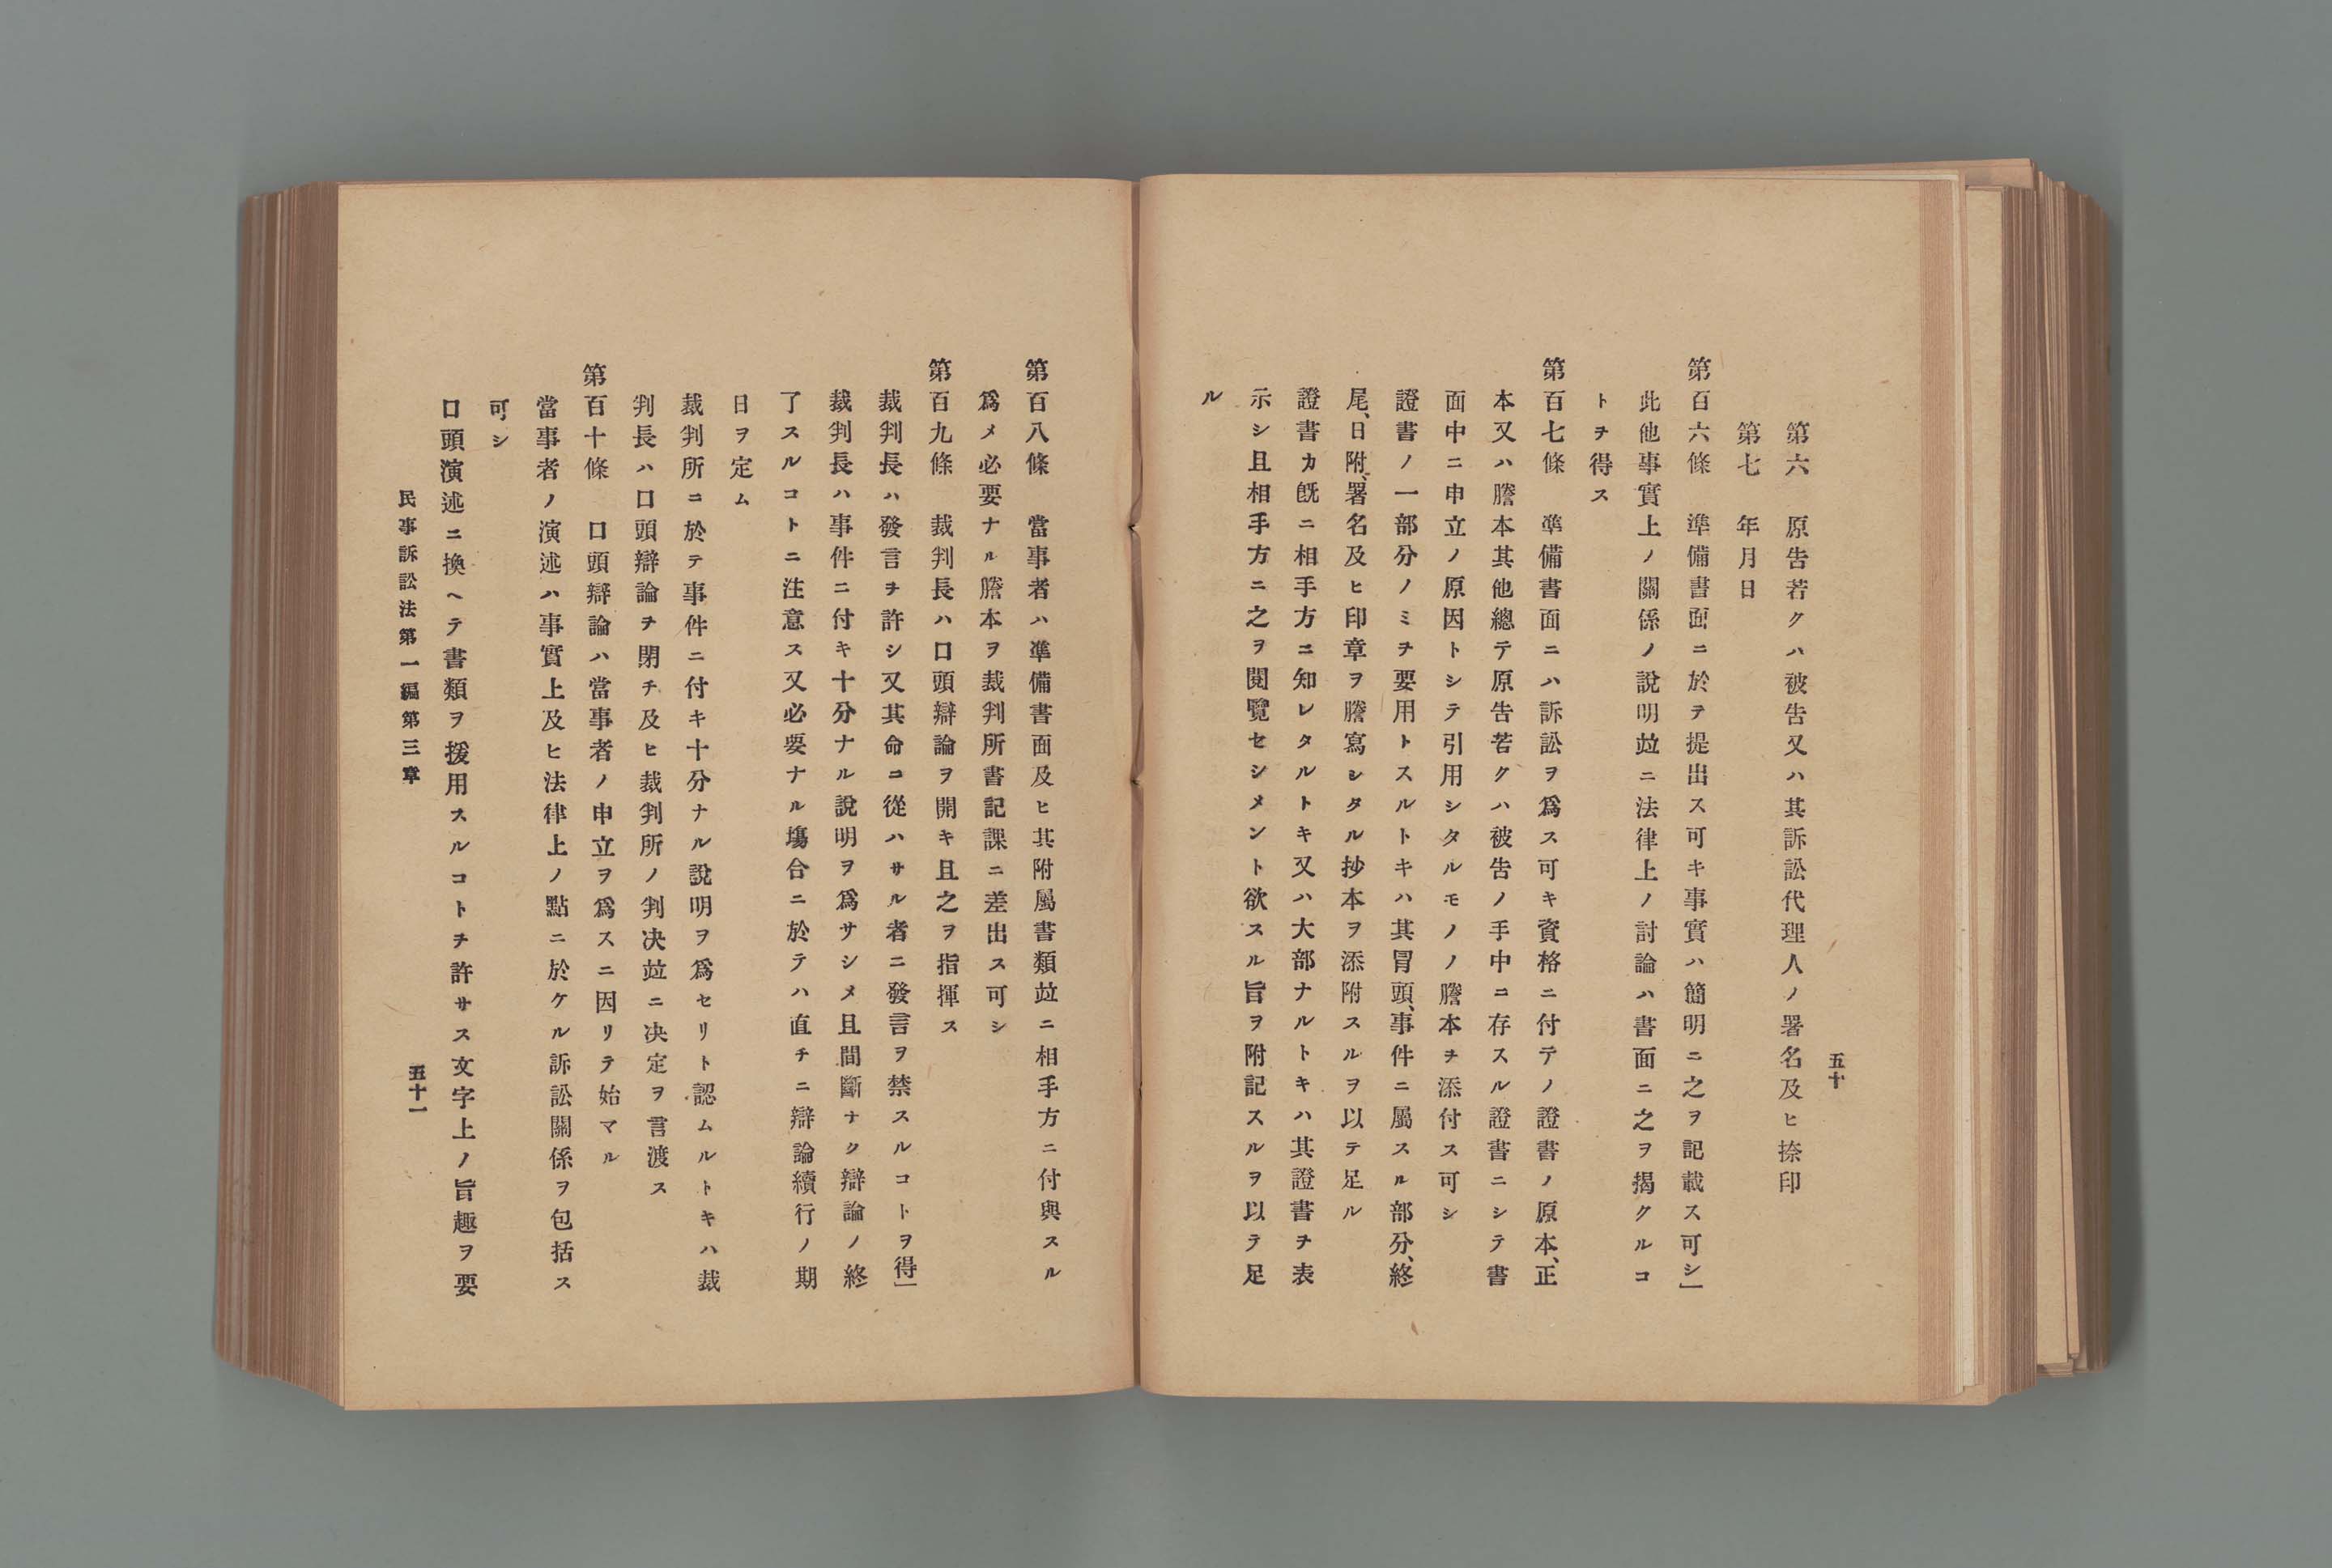 五十
第六　原告若クハ被告又ハ其訴訟代理人ノ署名及ヒ捺印
第七　年月日
第百六條　準備書面ニ於テ提出ス可キ事實ハ簡明ニ之ヲ記載ス可シ」
此他事實上ノ關係ノ說明竝ニ法律上ノ討論ハ書面ニ之ヲ揭クルコ
トヲ得ス
第百七條　準備書面ニハ訴訟ヲ爲ス可キ資格ニ付テノ證書ノ原本、正
本又ハ謄本其他總テ原告若クハ被告ノ手中ニ存スル證書ニシテ書
面中ニ申立ノ原因トシテ引用シタルモノノ謄本ヲ添付ス可シ
證書ノ一部分ノミヲ要用トスルトキハ其冒頭、事件ニ屬スル部分、終
尾、日附、署名及ヒ印章ヲ謄寫シタル抄本ヲ添附スルヲ以テ足ル
證書カ既ニ相手方ニ知レタルトキ又ハ大部ナルトキハ其證書ヲ表
示シ且相手方ニ之ヲ閱覽セシメント欲スル旨ヲ附記スルヲ以テ足
ル
第百八條　當事者ハ準備書面及ヒ其附屬書類竝ニ相手方ニ付與スル
爲メ必要ナル謄本ヲ裁判所書記課ニ差出ス可シ
第百九條　裁判長ハ口頭辯論ヲ開キ且之ヲ指揮ス
裁判長ハ發言ヲ許シ又其命ニ從ハサル者ニ發言ヲ禁スルコトヲ得」
裁判長ハ事件ニ付キ十分ナル說明ヲ爲サシメ且間斷ナク辯論ノ終
了スルコトニ注意ス又必要ナル塲合ニ於テハ直チニ辯論續行ノ期
日ヲ定ム
裁判所ニ於テ事件ニ付キ十分ナル說明ヲ爲セリト認ムルトキハ裁
判長ハ口頭辯論ヲ閉チ及ヒ裁判所ノ判决竝ニ决定ヲ言渡ス
第百十條　口頭辯論ハ當事者ノ申立ヲ爲スニ因リテ始マル
當事者ノ演述ハ事實上及ヒ法律上ノ點ニ於ケル訴訟關係ヲ包括ス
可シ
口頭演述ニ換ヘテ書類ヲ援用スルコトヲ許サス文字上ノ旨趣ヲ要
民事訴訟法第一編第三章
五十一